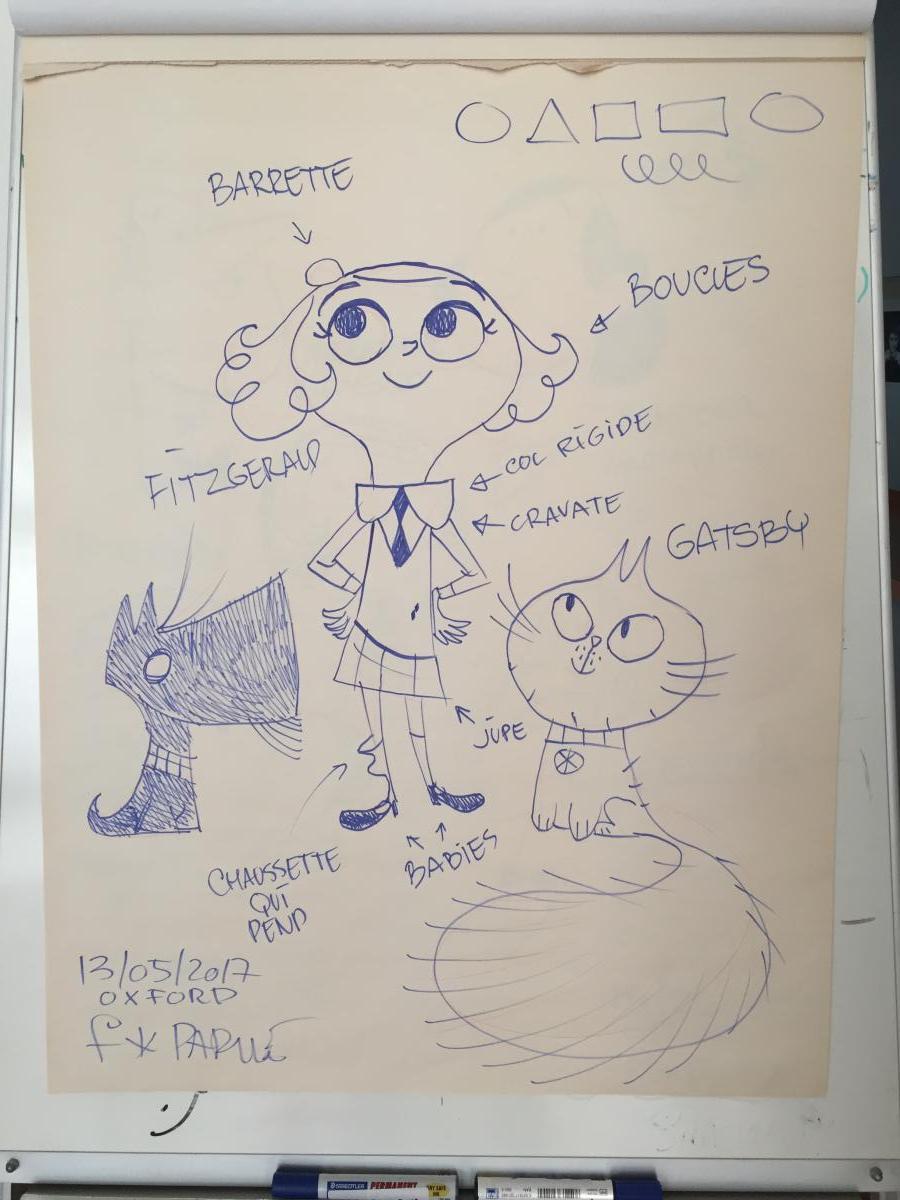 BARRETTE
BOUCLES
FITZGERALD
COL RIGIDE
CRAVATE
GATSBY
JUPE
BABIES
CHAUSSETTE
QUI
PEND
13/05/2017
OXFORD
STAEDTLER PERMANENT